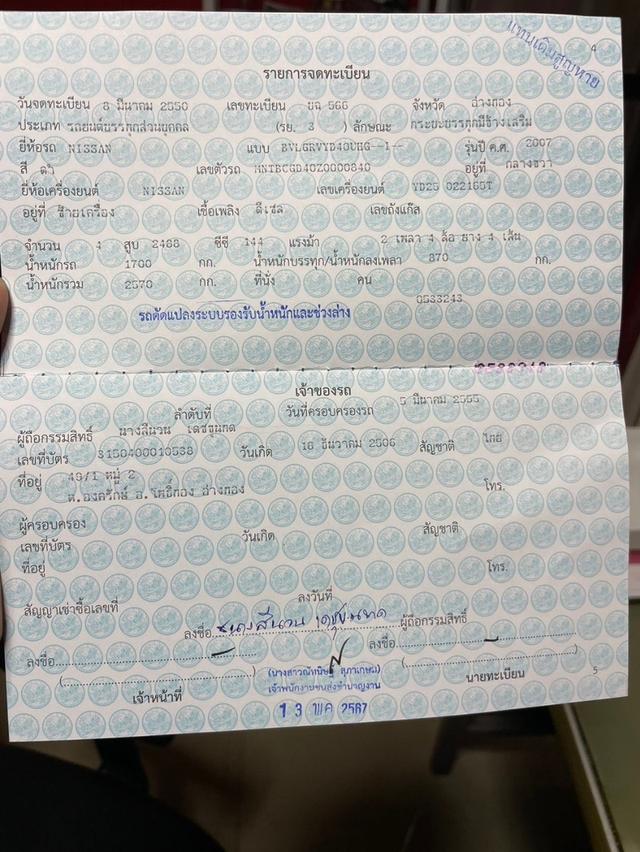 แทนเดิมสูญหาย
4
รายการจดทะเบียน
วันจดทะเบียน 8 มีนาคม 2550 เลขทะเบียน บฉ 566 จังหวัด อ่างทอง
ประเภท รถยนต์บรรทุกส่วนบุคคล (รย. 3 ) ลักษณะ กระบะบรรทุกมีข้างเสริม
ยี่ห้อรถ NISSAN แบบ BVLGRVYD40UHG--1-- รุ่นปี ค.ศ. 2007
สี ดำ เลขตัวรถ MNTBCGD40Z0000840 อยู่ที่ กลางขวา
ยี่ห้อเครื่องยนต์ NISSAN เลขเครื่องยนต์ YD25 022165T
อยู่ที่ ซ้ายเครื่อง เชื้อเพลิง ดีเซล เลขถังแก๊ส
จำนวน 4 สูบ 2488 ซีซี 144 แรงม้า 2 เพลา 4 ล้อ ยาง 4 เส้น
น้ำหนักรถ 1700 กก. น้ำหนักบรรทุก/น้ำหนักลงเพลา 870 กก.
น้ำหนักรวม 2570 กก. ที่นั่ง คน
0533243
รถดัดแปลงระบบรองรับน้ำหนักและช่วงล่าง
เจ้าของรถ
ลำดับที่ วันที่ครอบครองรถ 5 มีนาคม 2555
ผู้ถือกรรมสิทธิ์ นางสีนวน เดชขุนทด
เลขที่บัตร 3150400010538 วันเกิด 16 ธันวาคม 2506 สัญชาติ ไทย
ที่อยู่ 49/1 หมู่ 2
ต.องครักษ์ อ.โพธิ์ทอง อ่างทอง โทร.
ผู้ครอบครอง
เลขที่บัตร วันเกิด สัญชาติ
ที่อยู่ โทร.
สัญญาเช่าซื้อเลขที่ ลงวันที่
ลงชื่อ นางสีนวน เดชขุนทด ผู้ถือกรรมสิทธิ์
ลงชื่อ ลงชื่อ
เจ้าพนักงานขนส่งชำนาญงาน
เจ้าหน้าที่ นายทะเบียน
13 พ.ค. 2567
5